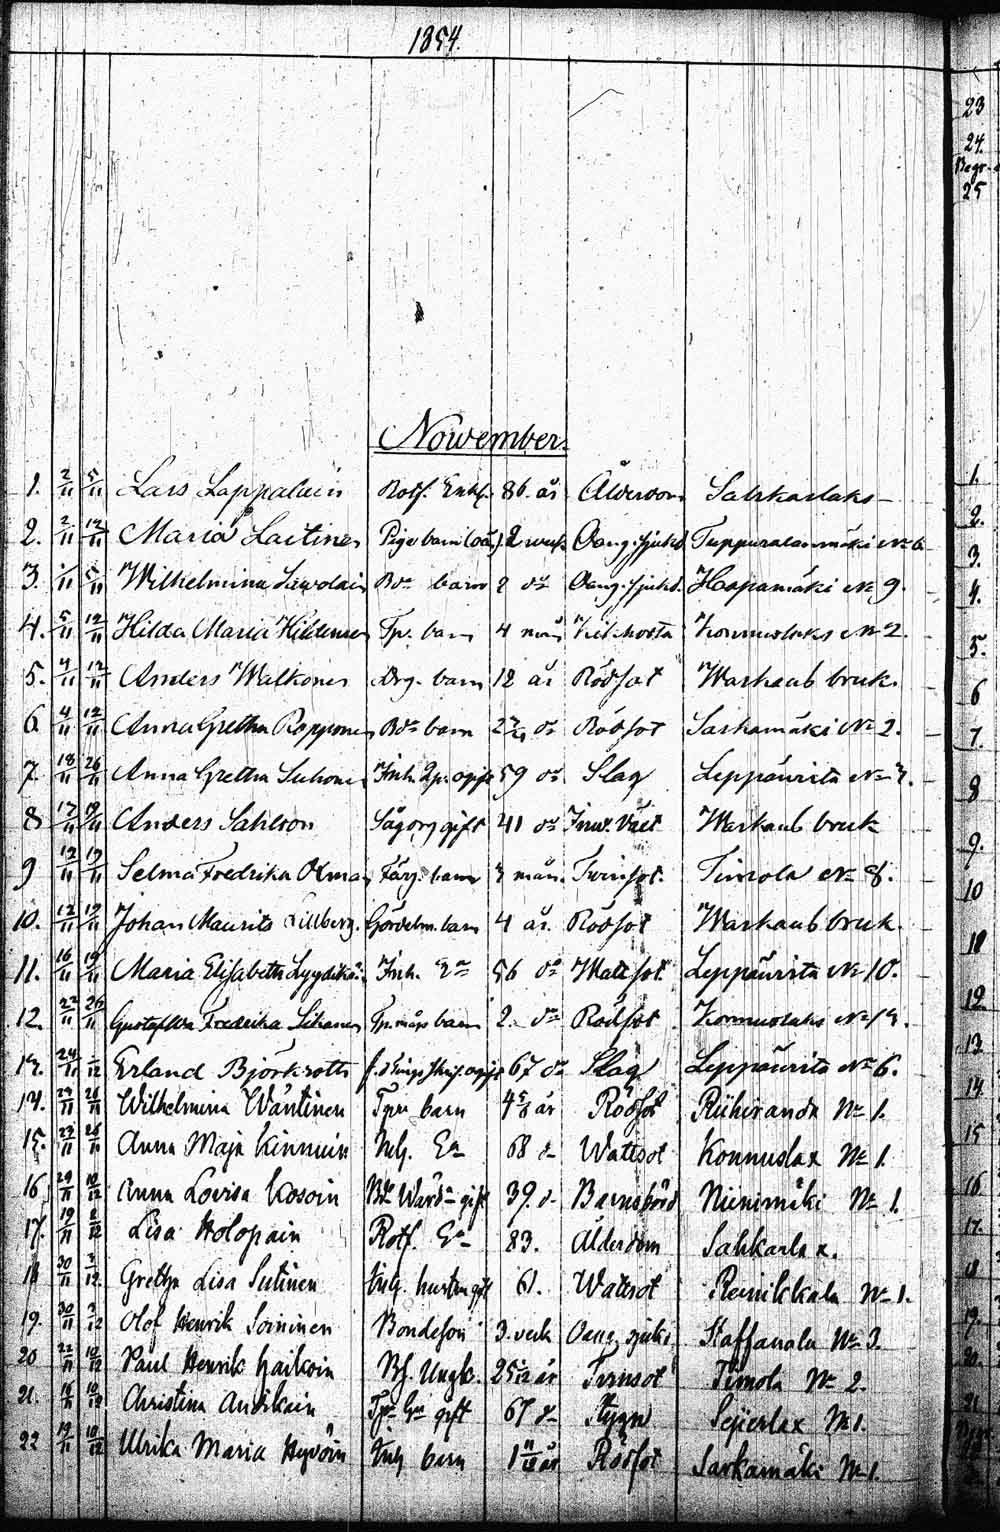 1854.
November.
1. 2/11 5/11 Lars Lappalain Rotf. Enkl. 86. år Ålderdom Sahkarlaks
2. 2/11 12/11 Maria Laitinen Pige barn (oä) 2 veck Oang. sjukd Tuppuralanmäki No 6
3. 1/11 5/11 Wilhelmina Sawolain Bde barn 2 do Oang. sjukd. Haapamäki No 9.
4. 5/11 12/11 Hilda Maria Hildenen Tp. barn 4 mån Kikhosta Konnuslaks No 2.
5. 4/11 12/11 Anders Walkonen Drg. barn 12 år Rödsot Warkaus bruk.
6. 4/11 12/11 Anna Gretha Ropponen Bde barn do Rödsot Sarkamäki No 2.
7. 18/11 26/11 Anna Gretha Suhonen Inh. ogift 59 do Slag Leppävirta No
8 17/11 19/11 Anders Sahlson Sågorg gift 41 do Inw. Vært Warkaus bruk
9 12/11 19/11 Selma Fredrika Färg. barn mån. Twinsot. Timola No 8.
10. 12/11 19/11 Johan Maurits Lillberg. Gördelm. barn 4 år. Rödsot Warkaus bruk.
11. 16/11 19/11 Maria Elisabeth Inh. Ea 56 do Wattsot Leppävirta No 10.
12. 22/11 26/11 Gustafwa Fredrika Sihvonen barn 2. do Rödsot Konnuslaks No
13. 24/11 /12 Erland Björkroth 67 do Slag Leppävirta No 6.
14. 24/11 26/11 Wilhelmina Wäntinen Tpr barn 4 5/6 år Rödsot Riihiranda No 1.
15. 23/11 26/11 Anna Maja Kinnuin Inh. Ea 68 d Wattsot Konnuslax No 1.
16 29/11 10/12 Anna Lovisa Kosoin gift 39. d Barnsbörd Nienimäki No 1.
17. 19/11 2/12 Lisa Holopain Rotf. Ea 83. Ålderdom Sahkarlax.
18 30/11 3/12 Gretha Lisa Sutinen Inh. hustru gift 61. Wattsot Reinikkala No 1.
19. 30/11 3/12 Olof Henrik Soininen Bondeson 3. veck Oang. sjukd. Staffanala No 3.
20 22/11 10/12 Paul Henrik Haikoin Bf. Ungk. 25 år Tvinsot Timola No 2.
21. 16/11 10/12 Christina Tpr gift 67 d Styng Sejierlax No 1.
22 19/11 10/12 Ulrika Maria Hyvöin Inh barn 1 år Rödsot Sarkamäki No 1.
23
24.
Begr.
25
1.
2.
3.
4.
5.
6
7.
8
9.
10
11
12
13
14
15
16
17.
18
19.
20.
21